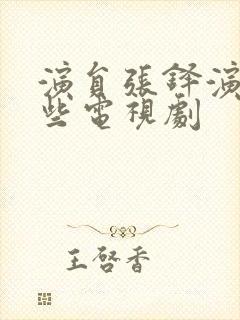 演員張鐸演
些電視劇
王啓香